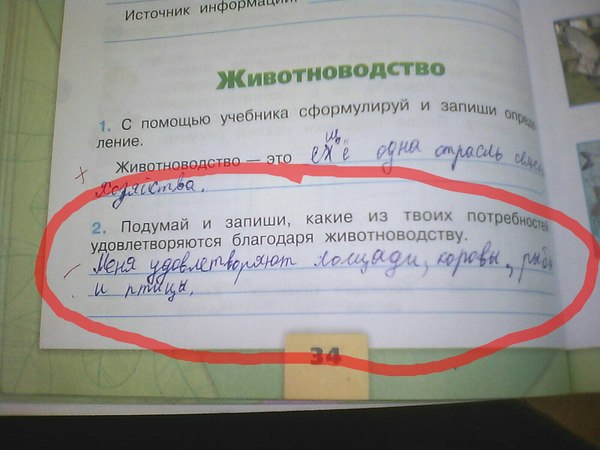 Источник информации:
Животноводство
1. С помощью учебника сформулируй и запиши опреде
ление.
Животноводство — это ещё одна отрасль сельс
хозяйства.
2. Подумай и запиши, какие из твоих потребностей
удовлетворяются благодаря животноводству.
Меня удовлетворяют лошади, коровы, рыбы
и птицы.
34